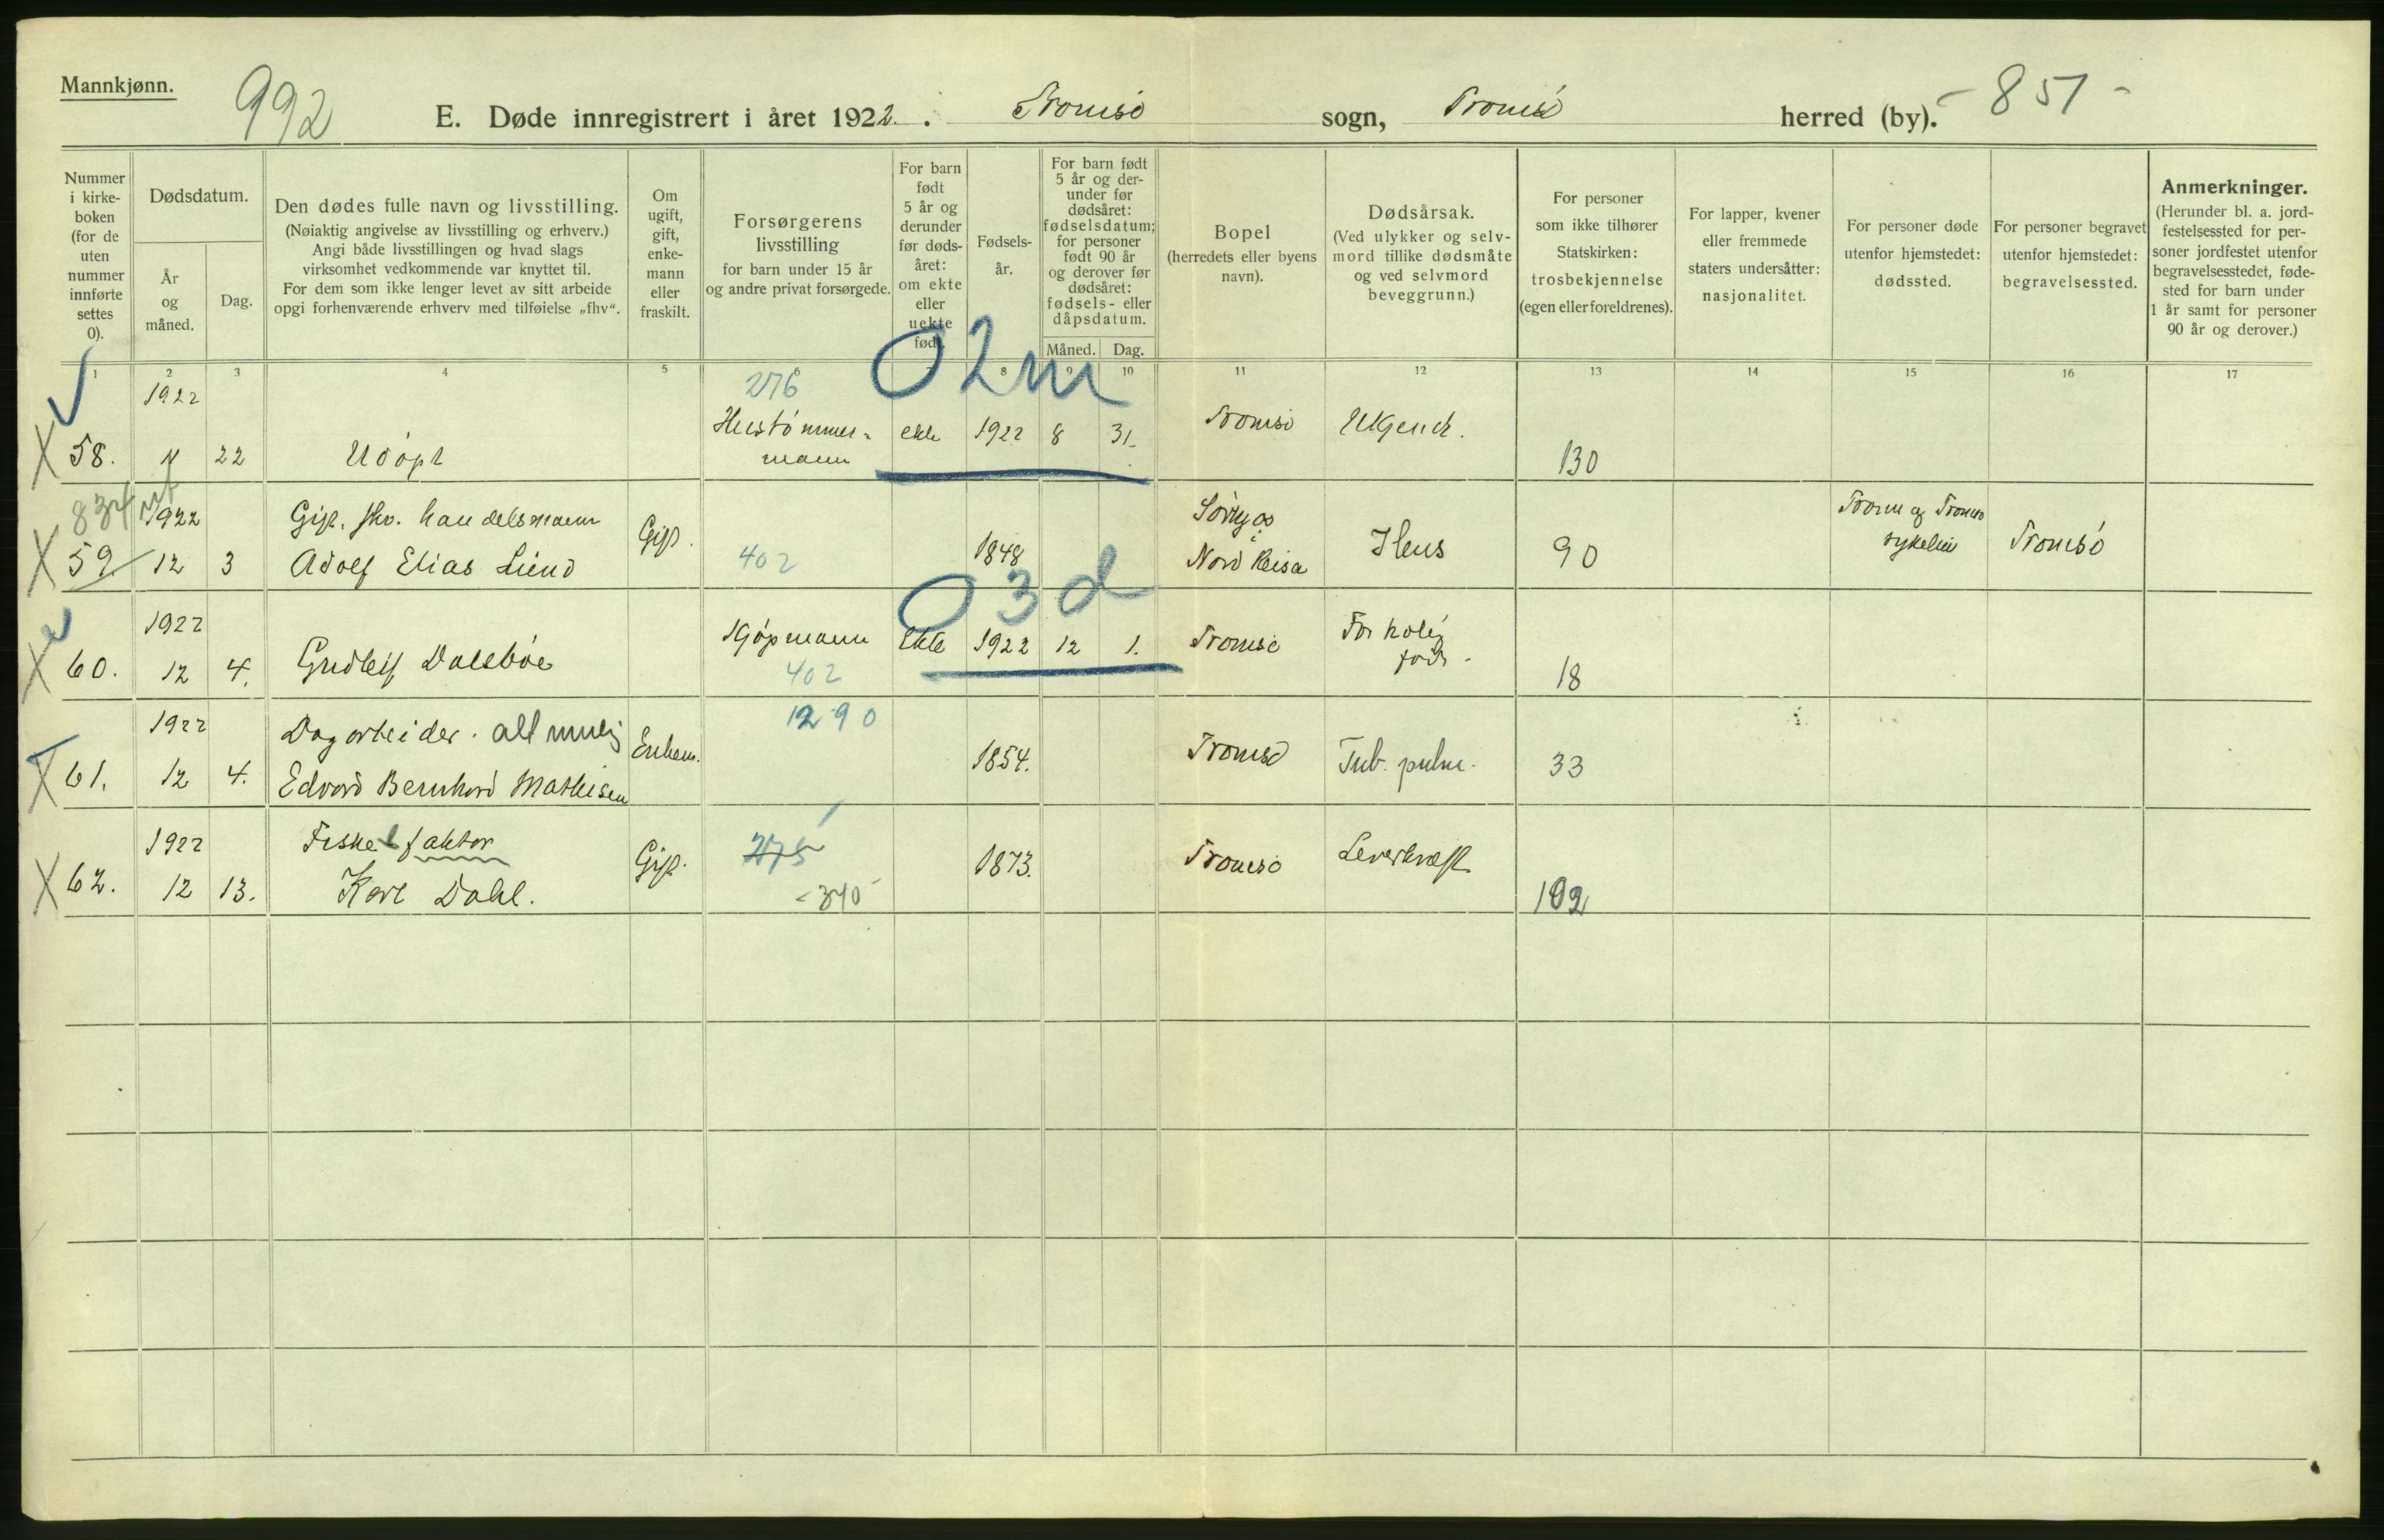 Mannkjønn.
992
E. Døde innregistrert i året 1922. Tromsø sogn, Tromsø herred (by). - 851 -
Nummer
i kirke-
boken
(for de
uten
nummer
innførte
settes
0).
Dødsdatum.
År
og
måned.
Dag.
Den dødes fulle navn og livsstilling.
(Nøiaktig angivelse av livsstilling og erhverv.)
Angi både livsstillingen og hvad slags
virksomhet vedkommende var knyttet til.
For dem som ikke lenger levet av sitt arbeide
opgi forhenværende erhverv med tilføielse „fhv“.
Om
ugift,
gift,
enke-
mann
eller
fraskilt.
Forsørgerens
livsstilling
for barn under 15 år
og andre privat forsørgede.
For barn
født
5 år og
derunder
før døds-
året:
om ekte
eller
uekte
født.
Fødsels-
år.
For barn født
5 år og der-
under før
dødsåret:
fødselsdatum;
for personer
født 90 år
og derover før
dødsåret:
fødsels- eller
dåpsdatum.
Måned.
Dag.
Bopel
(herredets eller byens
navn).
Dødsårsak.
(Ved ulykker og selv-
mord tillike dødsmåte
og ved selvmord
beveggrunn.)
For personer
som ikke tilhører
Statskirken:
trosbekjennelse
(egen eller foreldrenes).
For lapper, kvener
eller fremmede
staters undersåtter:
nasjonalitet.
For personer døde
utenfor hjemstedet:
dødssted.
For personer begravet
utenfor hjemstedet:
begravelsessted.
Anmerkninger.
(Herunder bl. a. jord-
festelsessted for per-
soner jordfestet utenfor
begravelsesstedet, føde-
sted for barn under
1 år samt for personer
90 år og derover.)
1 2 3 4 5 6 8 9 10 11 12 13 14 15 16 17
02m
1922 276
58. 11 22 Udøpt Hustømmer-
mann ekte 1922 8 31. Tromsø Ukjendt. 130
834
1922 Gift. fhv. handelsmann
59. 12 3 Adolf Elias Lund Gift. 402 1848 Sørkjos
i
Nord Reisa Ileus 90 Tromsø
sykehus Tromsø
03d
1922
60. 12 4. Gudleif Dalsbøe Kjøpmann
402 Ekte 1922 12 1. Tromsø For tidlig
født. 18
1922 Dagarbeider. alt mulig 1290
61. 12 4. Edvard Bernhard Mathisen Enkem. 1854. Tromsø Tub. pulm. 33
1922 Fiske faktor 275
62. 12 13. Karl Dahl. Gift. -340- 1873. Tromsø Leverkræft 102